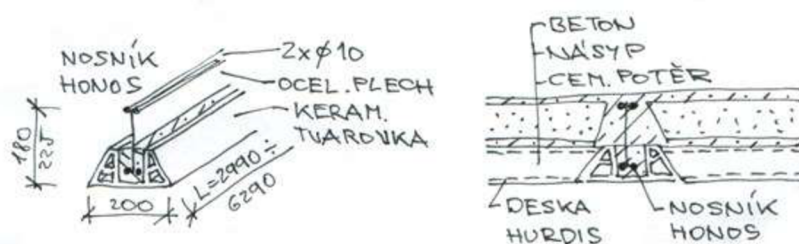 NOSNÍK
HONOS
2x⌀10
OCEL. PLECH
KERAM.
TVAROVKA
180
225
200
L=2990÷
6290
BETON
NÁSYP
CEM. POTĚR
DESKA
HURDIS
NOSNÍK
HONOS